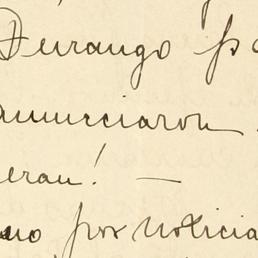 Durango pa
anunciaron
eran! —
no por noticia